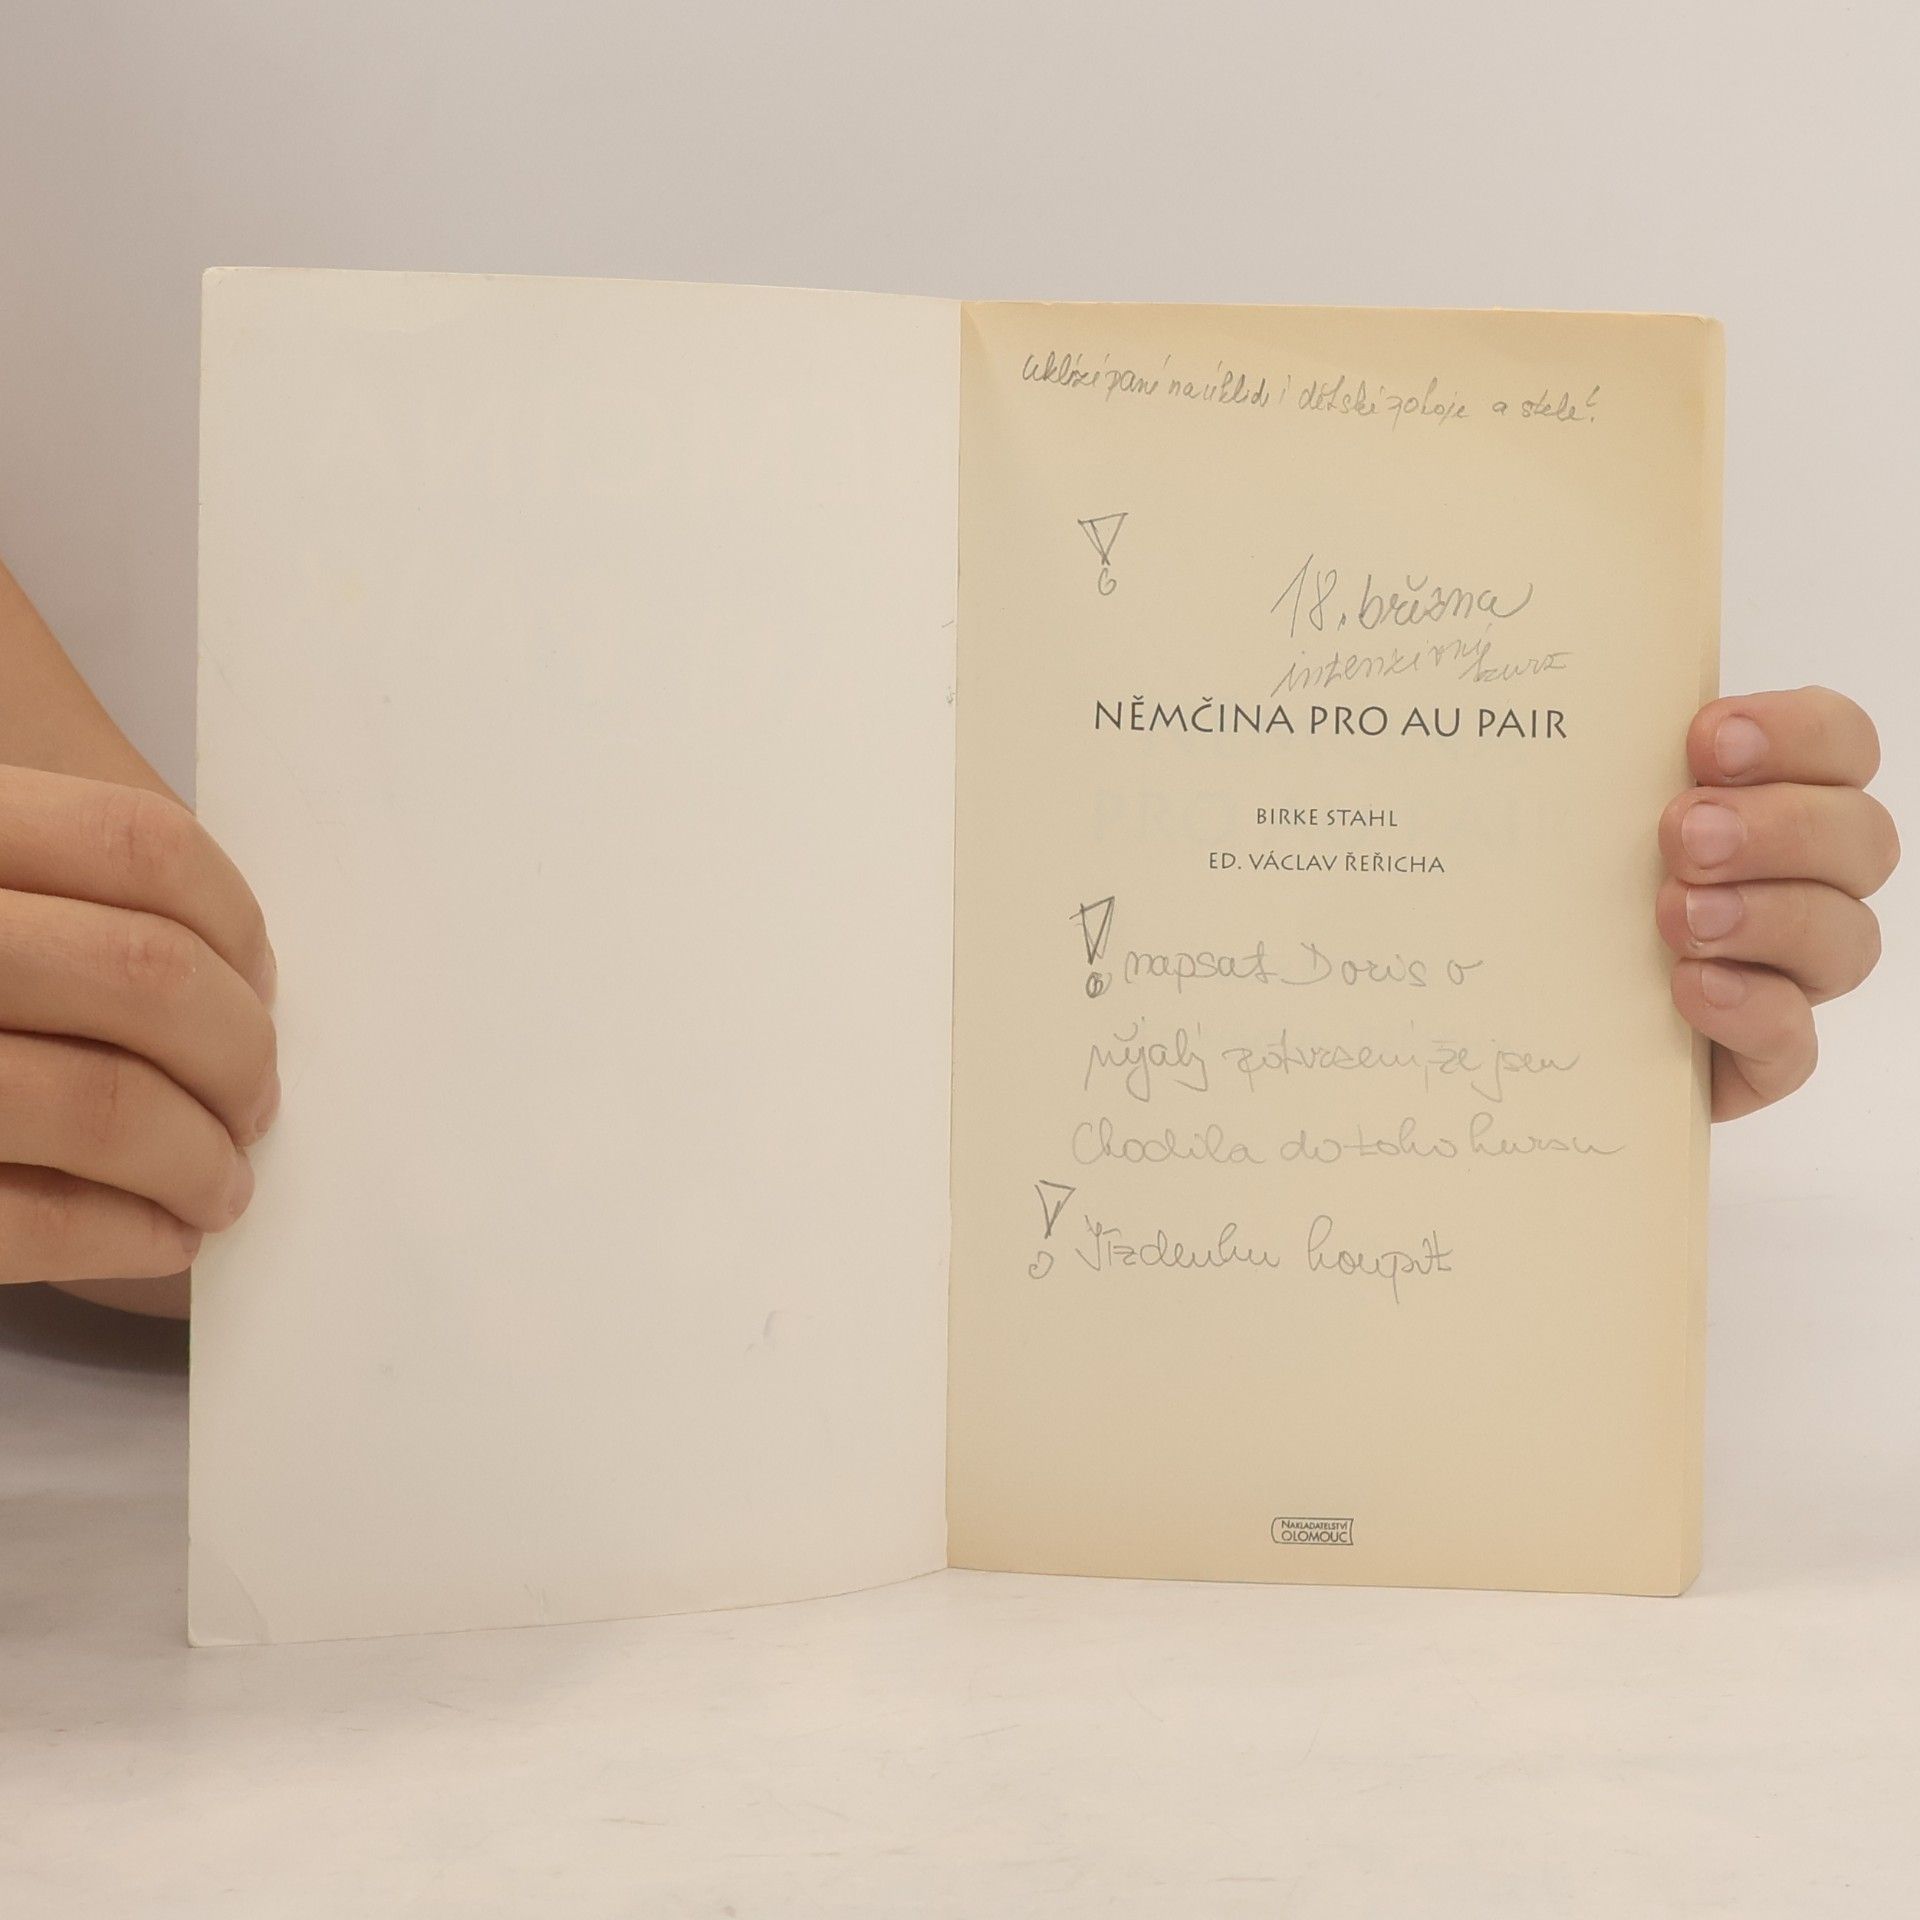 uklízí paní na úklid i dětské pokoje a stele?
!
18. března
intenzivní kurz
NĚMČINA PRO AU PAIR
BIRKE STAHL
ED. VÁCLAV ŘEŘICHA
! napsat Doris o
nějaký potvrzení, že jsem
Chodila do toho kurzu
! Jízdenku koupit
NAKLADATELSTVÍ
OLOMOUC